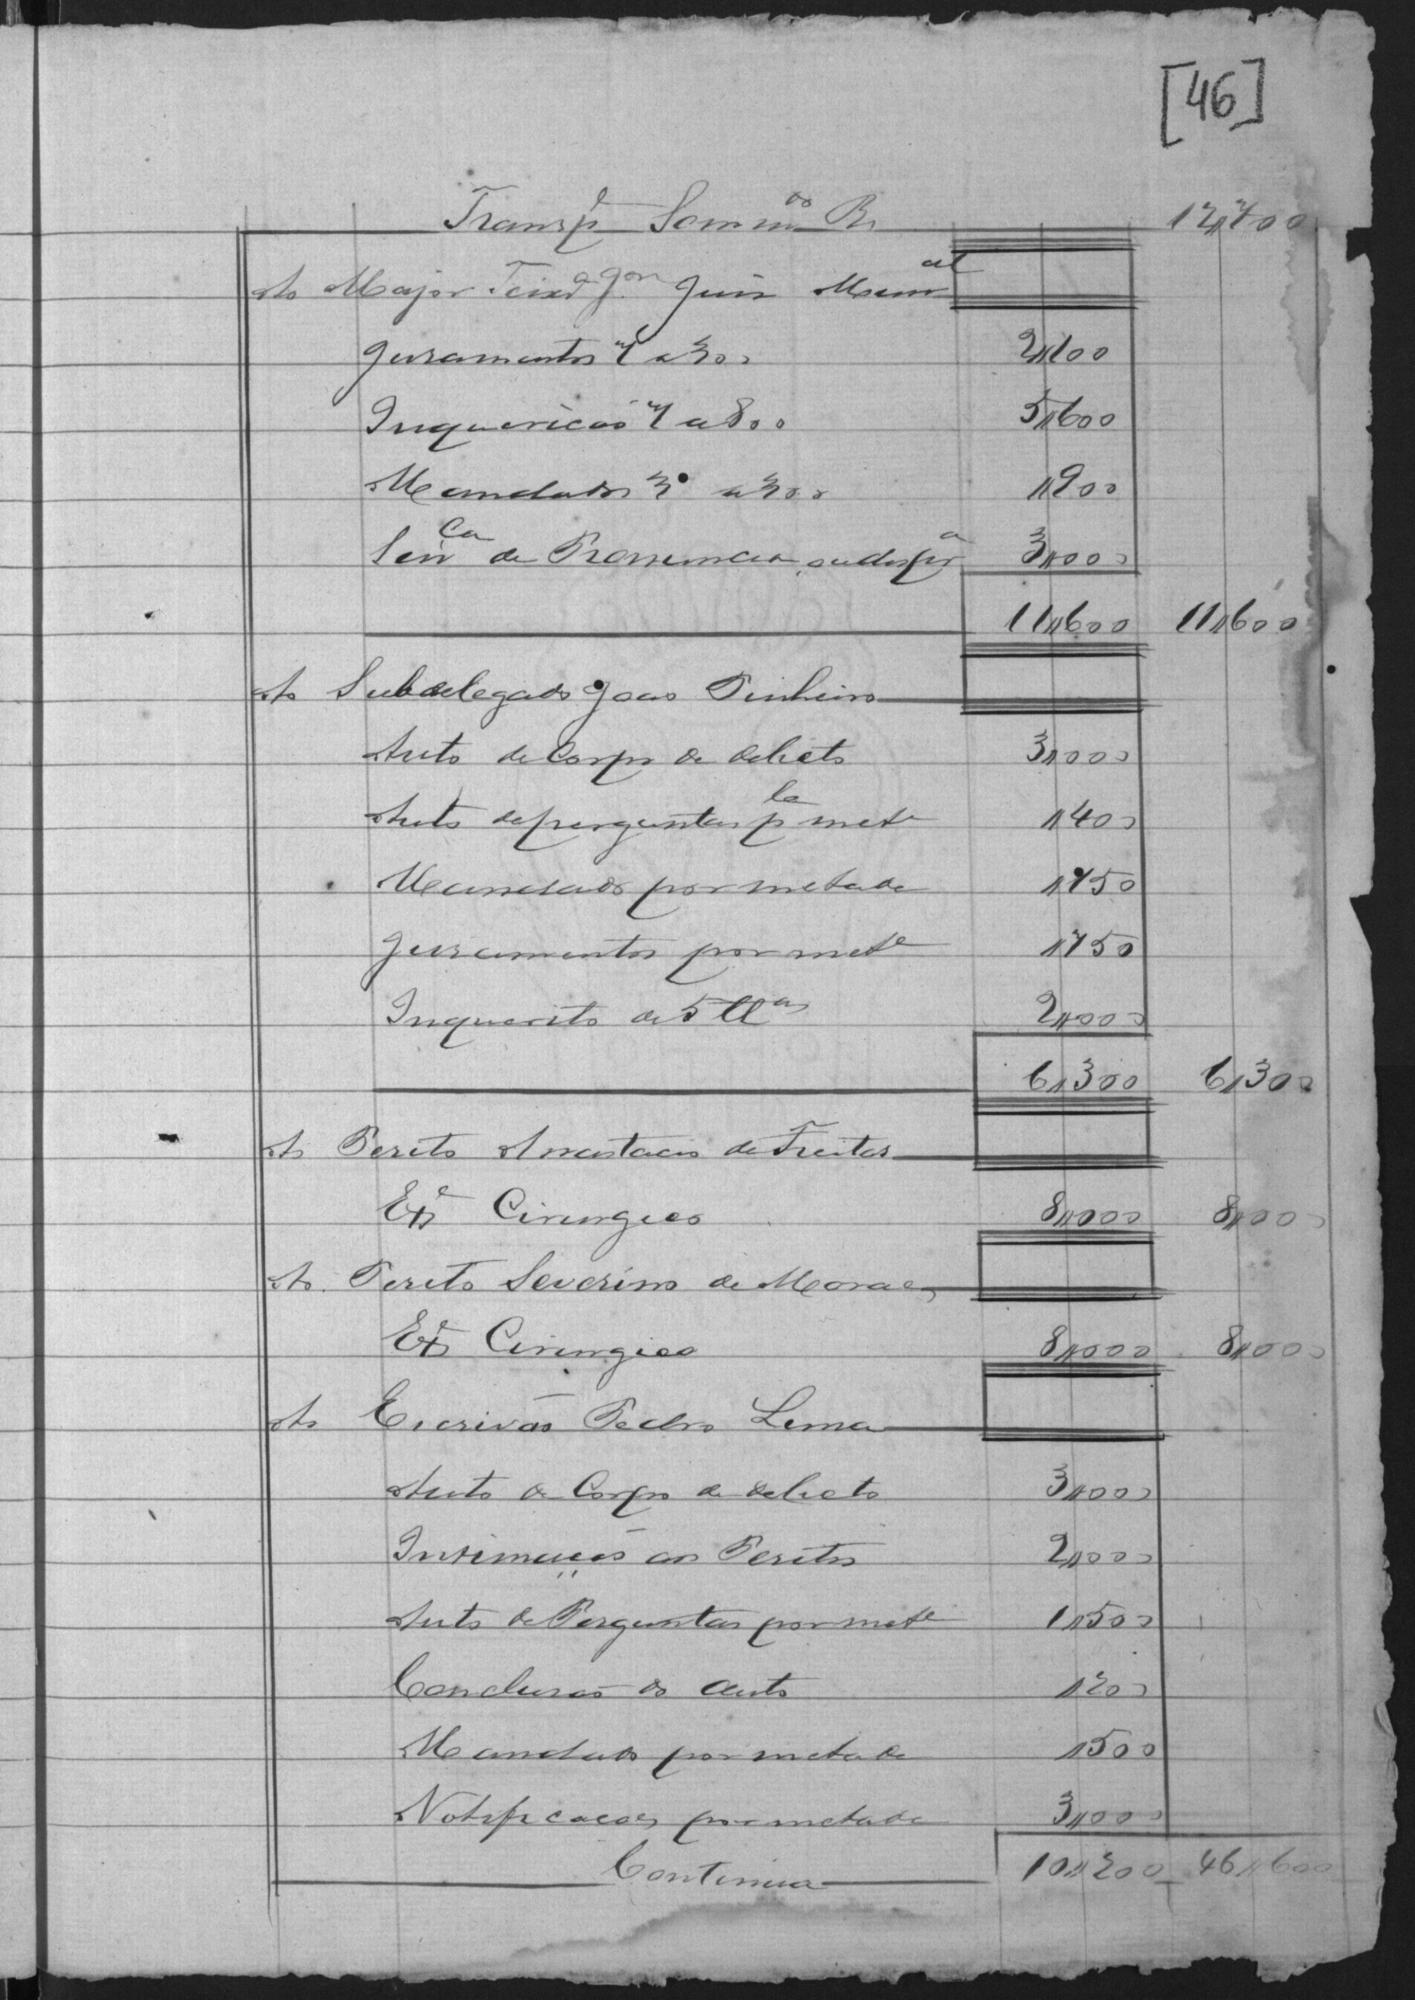 [46]
Transpe Sommdo Rs 12,,700
Ao Major Teixa Gon Juiz Munal
Juramentos 7 a 300 2,,100
Inquericão 7 a 800 5,,600
Mandados 3 a 300 ,,900
Senca de Pronuncia ou despa 3,,000
11,,600 11,,600
Ao Subdelegado João Pinheiro
Auto de Corpo de delicto 3,,000
Auto de perguntas pla mete ,,400
Mandado por metade ,,750
Juramentos por mete ,,150
Inquerito de 5 ttas 2,,000
6,,300 6,,300
Ao Perito Anastacio de Freitas
Exe Cirurgico 8,,000 8,,000
Ao Perito Severino de Moraes
Exe Cirurgico 8,,000 8,,000
Ao Escrivão Pedro Lima
Auto de Corpo de delicto 3,,000
Intimação aos Peritos 2,,000
Auto de Perguntas por mete 1,,500
Conclusão do auto ,,200
Mandado por metade ,,500
Notificacoes por metade 3,,000
Continua 10,,200 46,,600